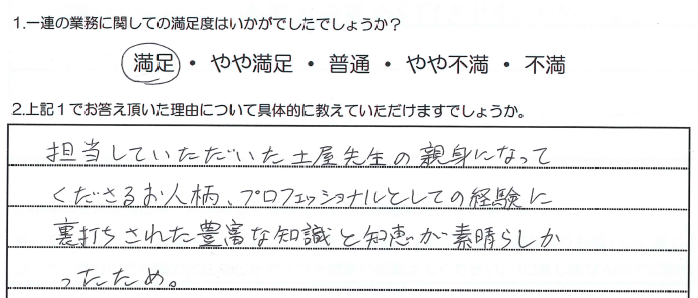 1.一連の業務に関しての満足度はいかがでしたでしょうか？
満足・やや満足・普通・やや不満・不満
2.上記1でお答え頂いた理由について具体的に教えていただけますでしょうか。
担当していただいた土屋先生の親身になって
くださるお人柄、プロフェッショナルとしての経験に
裏打ちされた豊富な知識と知恵が素晴らしか
ったため。